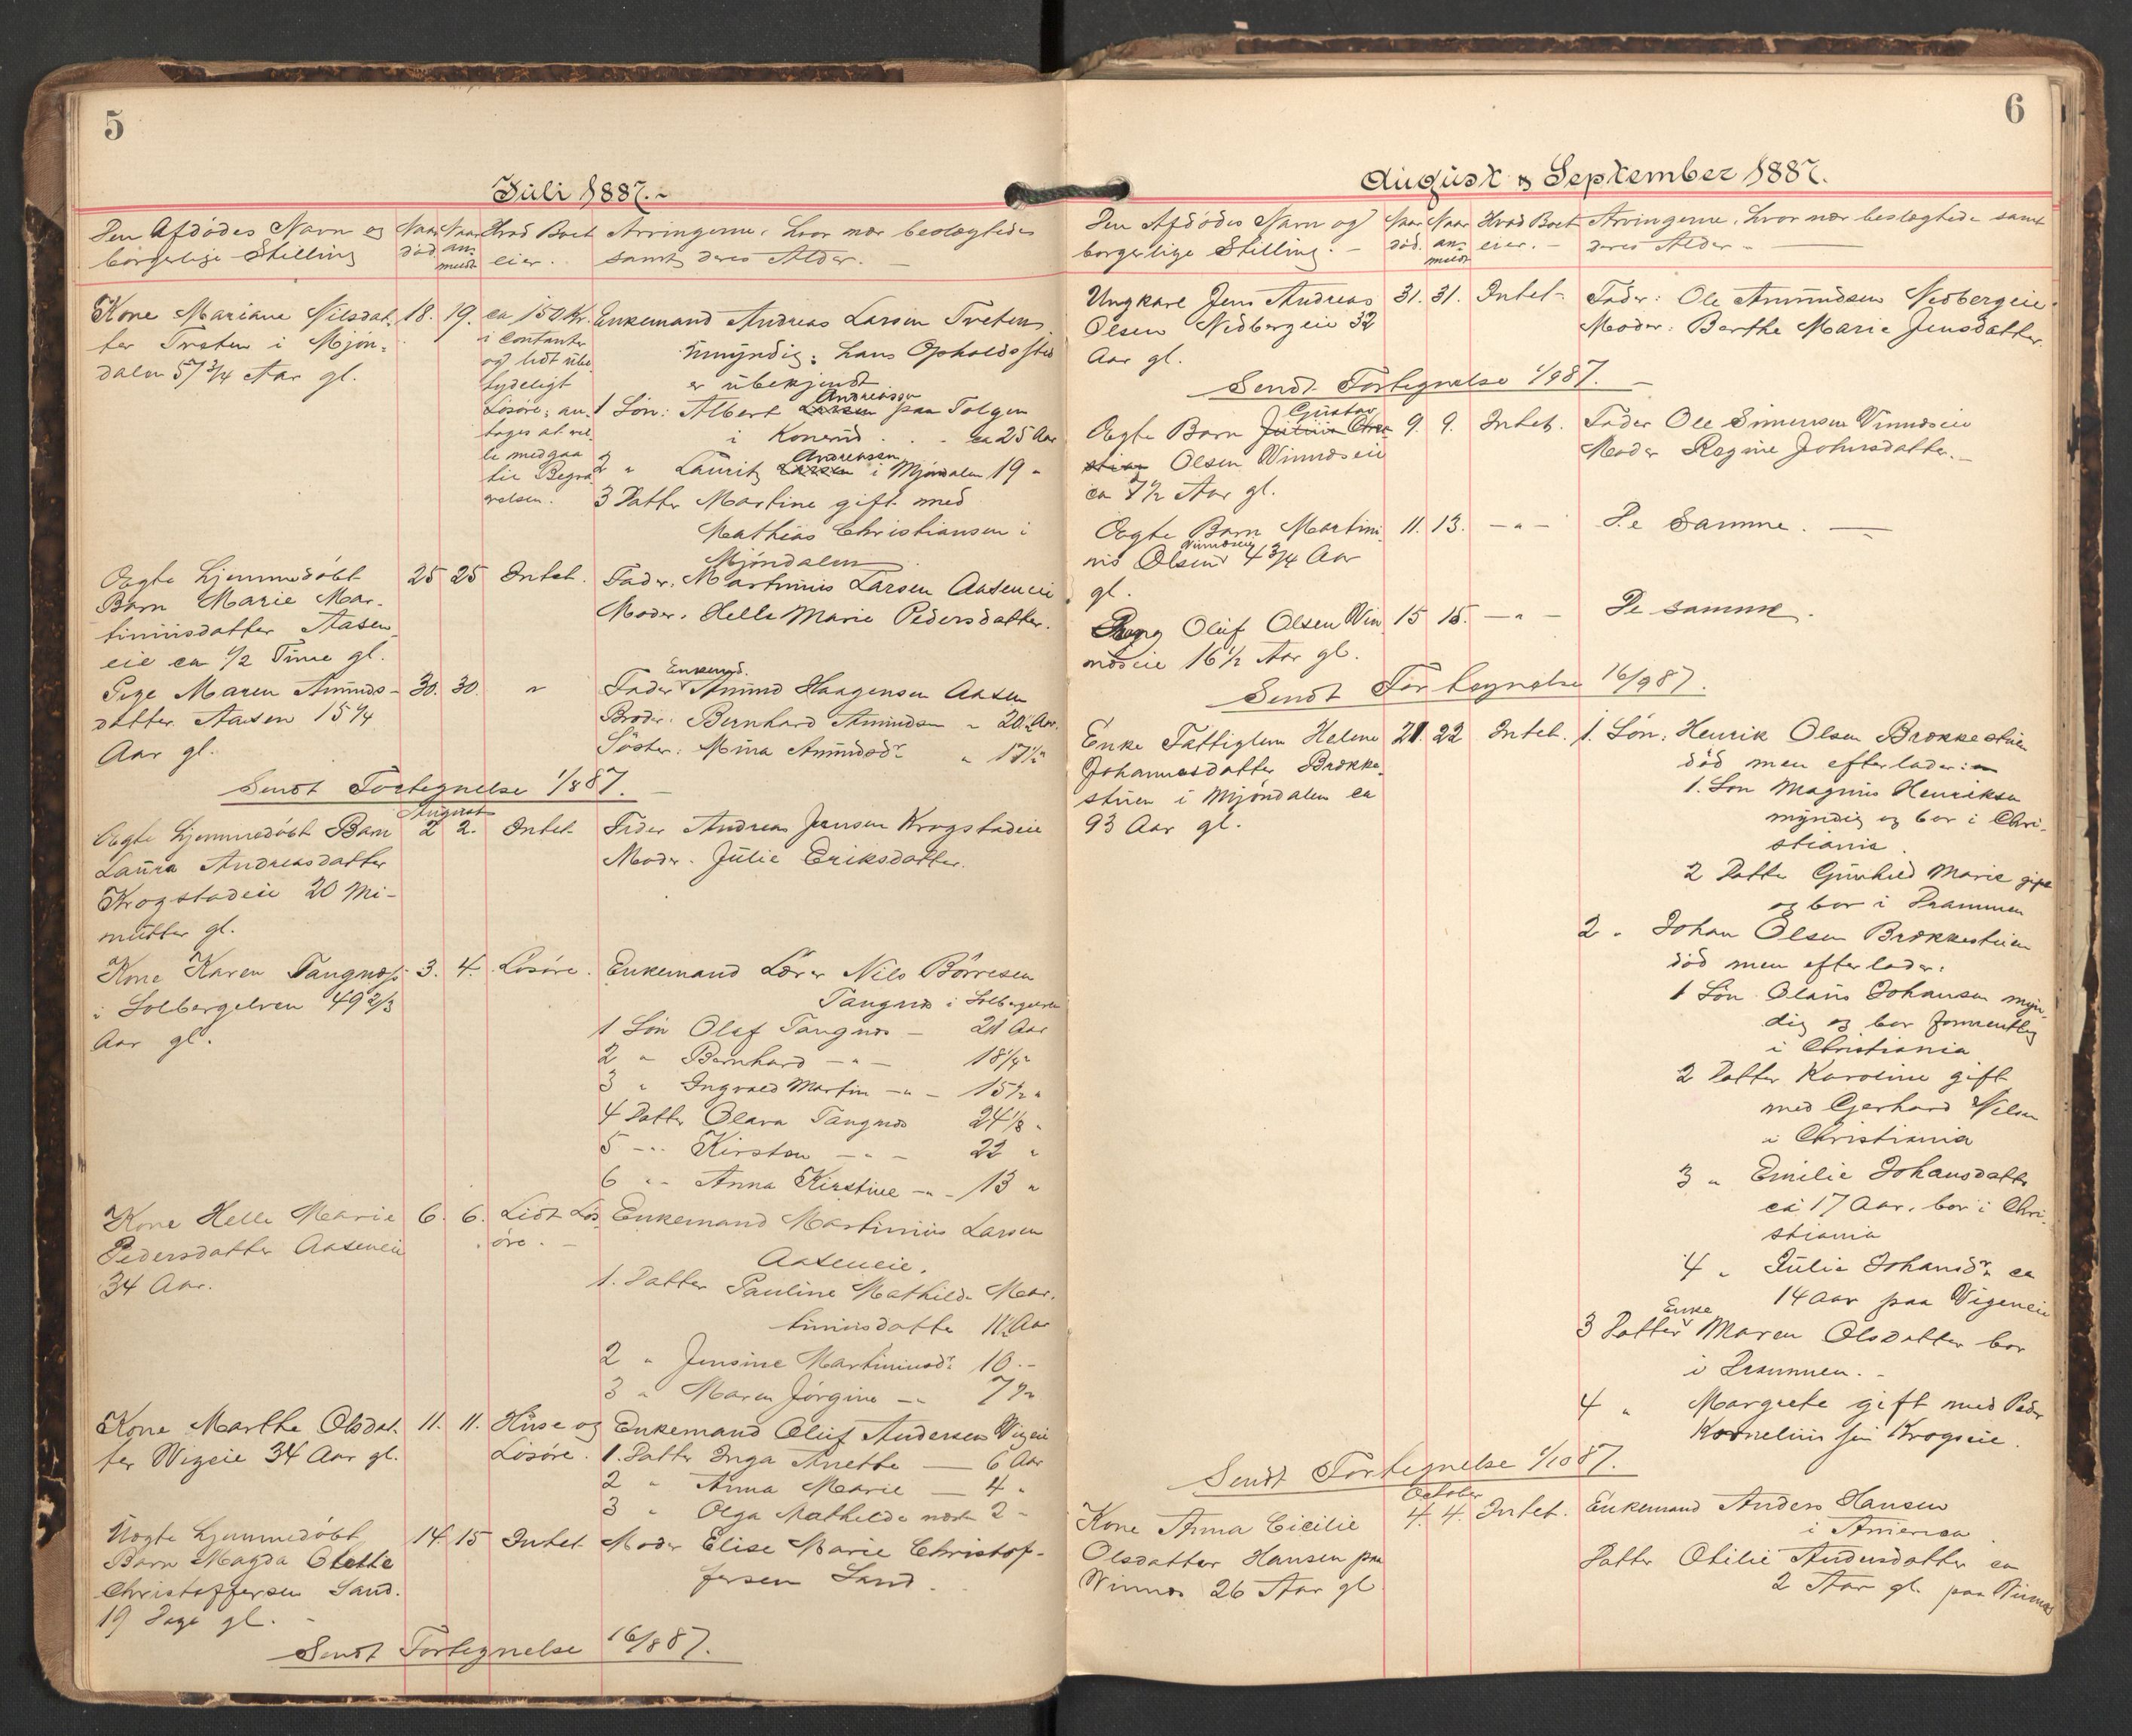 5
Juli 1887.-
Den Afdødes Navn og Naar Naar Hvad Boet Arvingerne, hvor nær beslægtede
borgerlige Stilling død. an- eier. samt deres Alder. -
meldt
Kone Mariane Nilsdat- 18. 19. ca 150 Kr. Enkemand Andreas Larsen Tveten
ter Tveten i Mjøn- i Contanter Umyndig: hans Opholdssted
dalen 57 3/4 Aar gl. og lidt ube- er ubekjendt
tydeligt Andreassen
Løsøre, an- 1 Søn: Albert Larsen paa Tolgen
tages at vil- i Konerud . . - ca 25 Aar
le medgaa Andreassen
til Begra- 2 " Lauritz Larsen i Mjøndalen 19 "
velsen. 3 Datter Martine gift med
Mathias Christiansen i
Mjøndalen
Ægte hjemmedøbt 25 25 Intet. Fader. Martinius Larsen Aaseneie
Barn Marie Mar- Moder. Helle Marie Pedersdatter.
tiniusdatter Aasen
eie ca 1/2 Time gl.
Enkemd.
Pige Maren Amunds- 30. 30. " Fader Amund Haagensen Aasen
datter Aasen 15 1/4 Broder: Bernhard Amundsen " 20 1/2 Aar.
Aar gl. Søster: Mina Amundsdr " 17 1/2 "
Sendt Fortegnelse 1/8 87.
August
Ægte hjemmedøbt Barn 2 2. Intet Fader Andreas Jensen Krogstadeie
Laura Andreasdatter Moder. Julie Eriksdatter.
Krogstadeie 20 Mi-
nutter gl.
Kone Karen Tangnæs 3. 4. Løsøre. Enkemand Lærer Nils Børresen
i Solbergelven 49 2/3 Tangnæs i Solbergelven
Aar gl. 1 Søn Olaf Tangnæs - 21 Aar
2 " Bernhard - " - 18 1/4 "
3 " Ingvald Martin - " - 15 1/2 "
4 Datter Olava Tangnæs 24 1/3 "
5 - " Kirsten - " - 22 "
6 " " Anna Kirstine - " - 13 "
Kone Helle Marie 6. 6. Lidt Løs- Enkemand Martinius Larsen
Pedersdatter Aaseneie øre. - Aaseneie.
34 Aar. 1. Datter Pauline Mathilde Mar-
tiniusdatter 11 1/2 Aar
2 " Jensine Martiniusdr 10. -
3 " Maren Jørgine - " 7 1/2 "
Kone Marthe Olsdat- 11. 11. Huse og Enkemand Oluf Andersen Wigeie
ter Wigeie 34 Aar gl. Løsøre. 1. Datter Inga Anette - 6 Aar
2 " Anna Marie - 4 "
3 " Olga Mathilde næst 2 "
Uægte hjemmedøbt 14. 15 Intet Moder Elise Marie Christof-
Barn Magda Olette fersen Sand.
Christoffersen Sand.
19 Dage gl. -
Sendt Fortegnelse 16/8 87.
6
August & September 1887.
Den Afdødes Navn og Naar Naar Hvad Boet Arvingerne, hvor nær beslægtede samt
borgerlige Stilling. - død. an- eier. - deres Alder -
meldt
Ungkarl Jens Andreas 31. 31. Intet - Fader: Ole Amundsen Nedbergeie.
Olsen Nedbergeie 32 Moder: Berthe Marie Jensdatter.
Aar gl.
Sendt Fortegnelse 1/9 87. -
Gustav
Ægte Barn Julius Chri- 9. 9. Intet. Fader Ole Simensen Vinnæseie
stian Olsen Winnæseie Moder Regine Johnsdatter. -
ca 7 1/2 Aar gl.
Ægte Barn Martini- 11. 13. - " - De Samme. -
Vinnæseie
nis Olsen 4 3/4 Aar
gl.
Oluf Olsen Win- 15 15. - " - De samme.
næseie 16 1/2 Aar gl.
Sendt Fortegnelse 16/9 87.
Enke Fattiglem Helene 21. 22 Intet. 1. Søn: Henrik Olsen Brækkestuen
Johannesdatter Brække- død men efterlader:
stuen i Mjøndalen ca 1. Søn Magnus Henriksen
93 Aar gl. myndig og bor i Chri-
stiania.
2 Datter Gunhild Marie gift
og bor i Drammen
2. Johan Olsen Brækkestuen
død men efterlader:
1 Søn Olaus Johansen myn-
dig og bor formentlig
i Christiania
2 Datter Karoline gift
med Gerhard Nilsen
i Christiania
3 " Emilie Johansdatter
ca 17 Aar. bor i Chri-
stiania
4 " Julie Johansdr ca
14 Aar paa Wigeneie
Enke
3 Datter Maren Olsdatter bor
i Drammen. -
4 " Margrete gift med Peder
Kornelius sen Krogseie.
Sendt Fortegnelse 1/10 87.
October
Kone Anna Cicilie 4. 4. Intet. Enkemand Anders Hansen
Olsdatter Hansen paa i America
Winnæs 26 Aar gl Datter Otilie Andersdatter ca
2 Aar gl. paa Winnæs